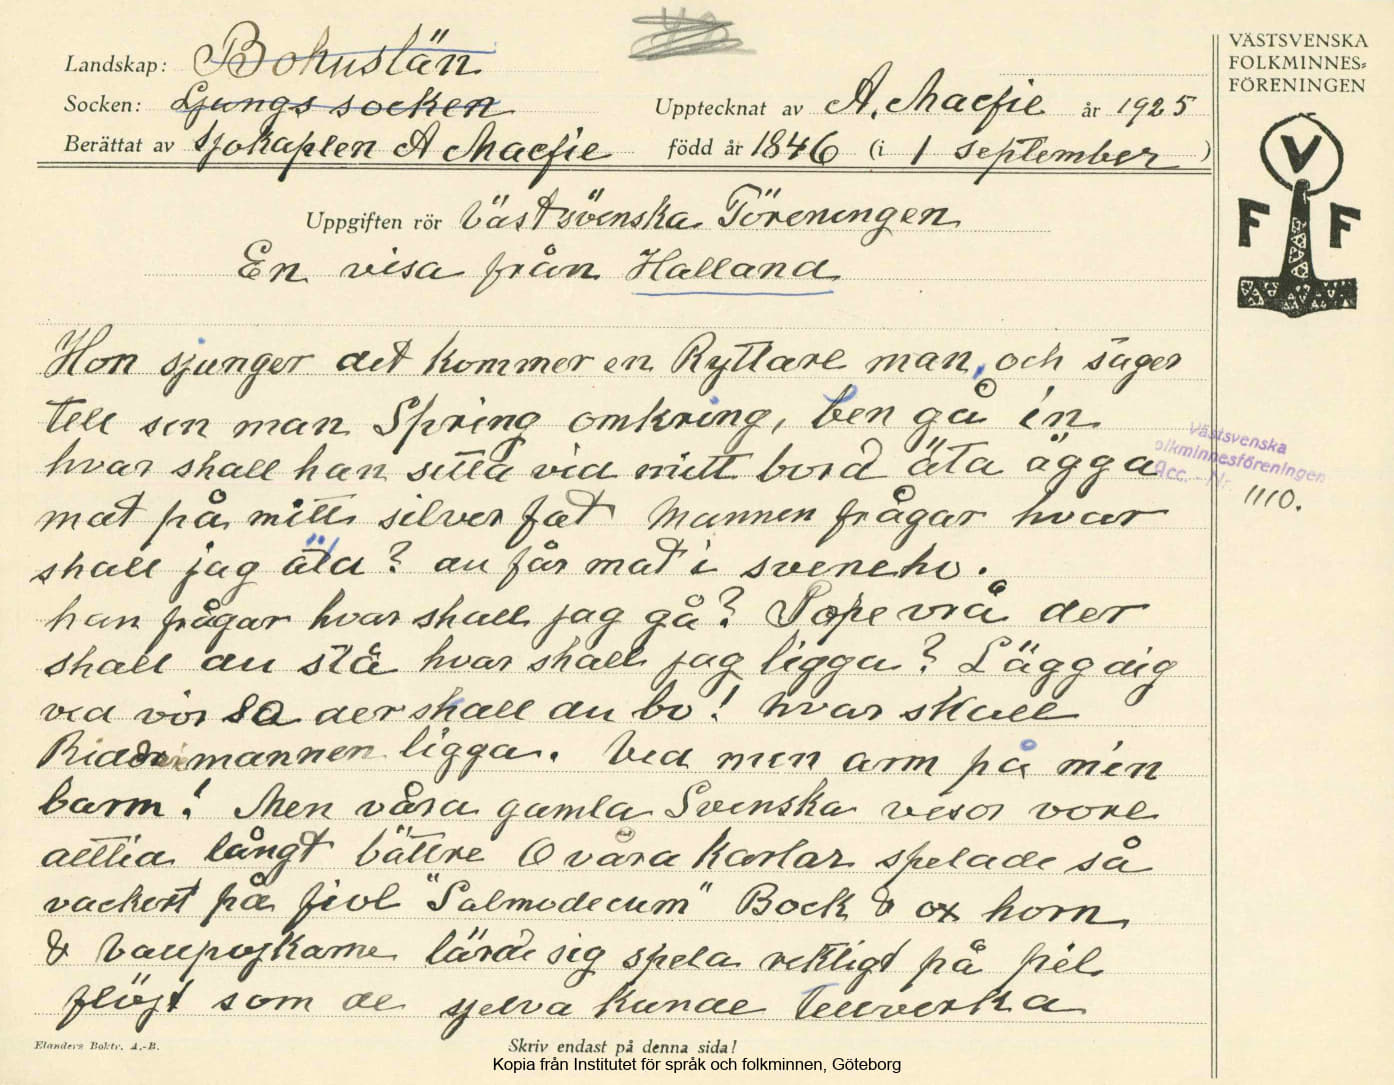 VÄSTSVENSKA
FOLKMINNES=
FÖRENINGEN
Landskap: Bohuslän
Socken: Ljungs socken
Upptecknat av A. Macfie år 1925
Berättat av sjökapten A Macfie född år 1846 (i 1 september)
V
F F
Uppgiften rör Västsvenska Föreningen
En visa från Halland
Hon sjunger det kommer en Ryttare man, och säger
till sin man Spring omkring, ben gå in
hvar skall han sitta vid mitt bord äta ägga
mat på mitt silver fat Mannen frågar hvar
skall jag äta? du får mat i svineho.
han frågar hvar skall jag gå? I ope vrå der
skall du stå hvar skall jag ligga? Lägg dig
ved vör so der skall du bo! hvar skall
mannen ligga. Ved min arm på min
barm! Men våra gamla Svenska visor vore
alltid långt bättre O våra Karlar spelade så
vackert på fiol "Salmodecum" Bock & ox horn
& vallpojkarne lärde sig spela riktigt på pil
flöjt som de sjelva kunde tillverka
Västsvenska
olkminnesföreningen
Acc. - Nr. 1110.
Elanders Boktr. A.-B.
Skriv endast på denna sida!
Kopia från Institutet för språk och folkminnen, Göteborg